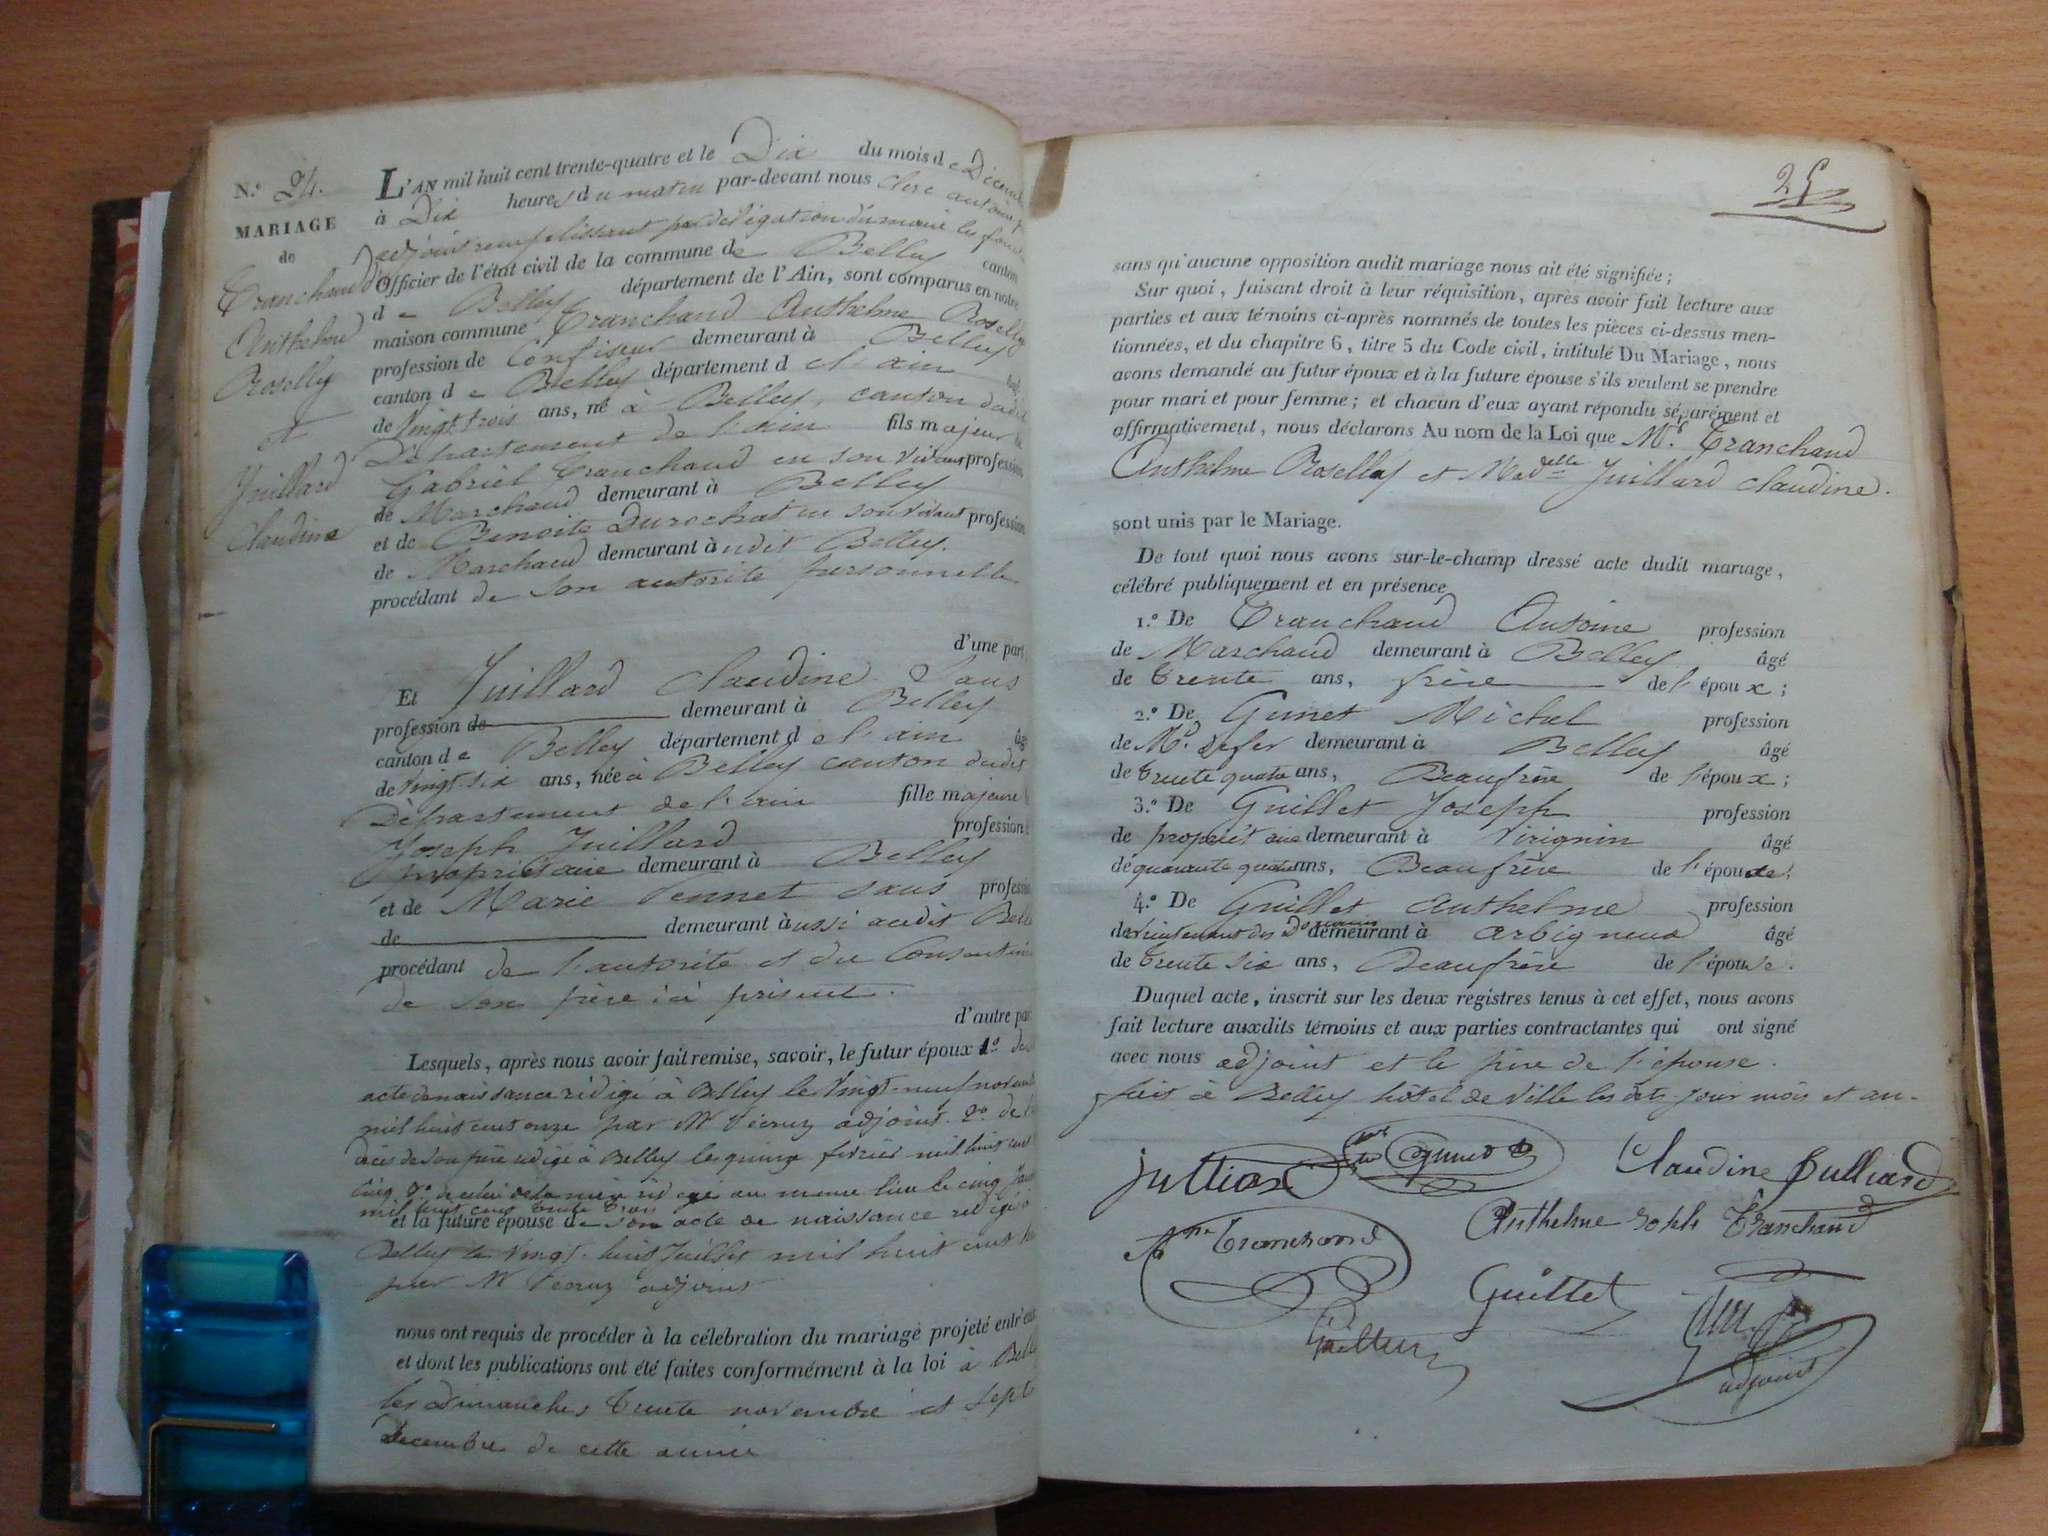 N.º 24.
MARIAGE
de
Tranchand
Anthelme
Roselly
et
Juillard
Claudine
L'AN mil huit cent trente-quatre et le Dix du mois de Décembre
à Dix heures du matin par-devant nous clerc antoine
adjoint remplissant par délégation du maire les fonct
Officier de l'état civil de la commune de Belley canton
de Belley département de l'Ain, sont comparus en notre
maison commune Tranchand Anthelme Roselly
profession de Confiseur demeurant à Belley
canton de Belley département de l'ain âgé
de Vingt trois ans, né à Belley, canton dudit
Département de l'ain fils majeur de
Gabriel Tranchand en son vivant profession
de Marchand demeurant à Belley
et de Benoite Durochat en son vivant profession
de Marchand demeurant à udit Belley.
procédant de son autorité personnelle
d'une part,
Et Juillard Claudine Sans
profession de demeurant à Belley
canton de Belley département de l'ain âgé
de Vingt-six ans, née à Belley canton dudit
Département de l'ain fille majeure
Joseph Juillard profession
propriétaire demeurant à Belley
et de Marie Vennet sans profession
de demeurant aussi audit Belle
procédant de l'autorité et du Consentem
de son père ici présent.
d'autre par
Lesquels, après nous avoir fait remise, savoir, le futur époux 1.º de
acte de naissance rédigé à Belley le Vingt-neuf novemb
mil huit cent onze par M adjoint. 2.º de
décès de son père rédigé à Belley le quinze février mil huit cent
cinq 3.º celui de la mère rédigé au même lieu le cinq Jan
mil huit cent trente trois
et la future épouse de son acte de naissance rédigé à
Belley le Vingt-huit Juillet mil huit cent
par M adjoint
nous ont requis de procéder à la célébration du mariage projeté entr'eux
et dont les publications ont été faites conformément à la loi à Belle
les dimanches trente novembre et sept
Decembre de cette année
25
sans qu'aucune opposition audit mariage nous ait été signifiée ;
Sur quoi, faisant droit à leur réquisition, après avoir fait lecture aux
parties et aux témoins ci-après nommés de toutes les pièces ci-dessus men-
tionnées, et du chapitre 6, titre 5 du Code civil, intitulé Du Mariage, nous
avons demandé au futur époux et à la future épouse s'ils veulent se prendre
pour mari et pour femme ; et chacun d'eux ayant répondu séparément et
affirmativement, nous déclarons Au nom de la Loi que Mr. Tranchand
Anthelme Roselly et Madelle Juillard claudine.
sont unis par le Mariage.
De tout quoi nous avons sur-le-champ dressé acte dudit mariage,
célébré publiquement et en présence
1.º De Tranchand Antoine profession
de Marchand demeurant à Belley âgé
de trente ans, frère de l'époux ;
2.º De Gunet Michel profession
de Md. de fer demeurant à Belley âgé
de trente quatre ans, Beaufrère de l'époux ;
3.º De Guillet Joseph profession
de propriétaire demeurant à Virignin âgé
de quarante quatre ans, Beaufrère de l'épouse ;
4.º De Guillet Anthelme profession
de lieutenant des D.es demeurant à arbignieu âgé
de trente six ans, Beaufrère de l'épouse.
Duquel acte, inscrit sur les deux registres tenus à cet effet, nous avons
fait lecture auxdits témoins et aux parties contractantes qui ont signé
avec nous adjoint et le père de l'épouse.
fait à Belley hôtel de Ville les dits jour mois et an.
Julliard Gunet Claudine Julliard
Ane Tranchand Anthelme Roseli Tranchand
Guillet
Guillet
adjoint